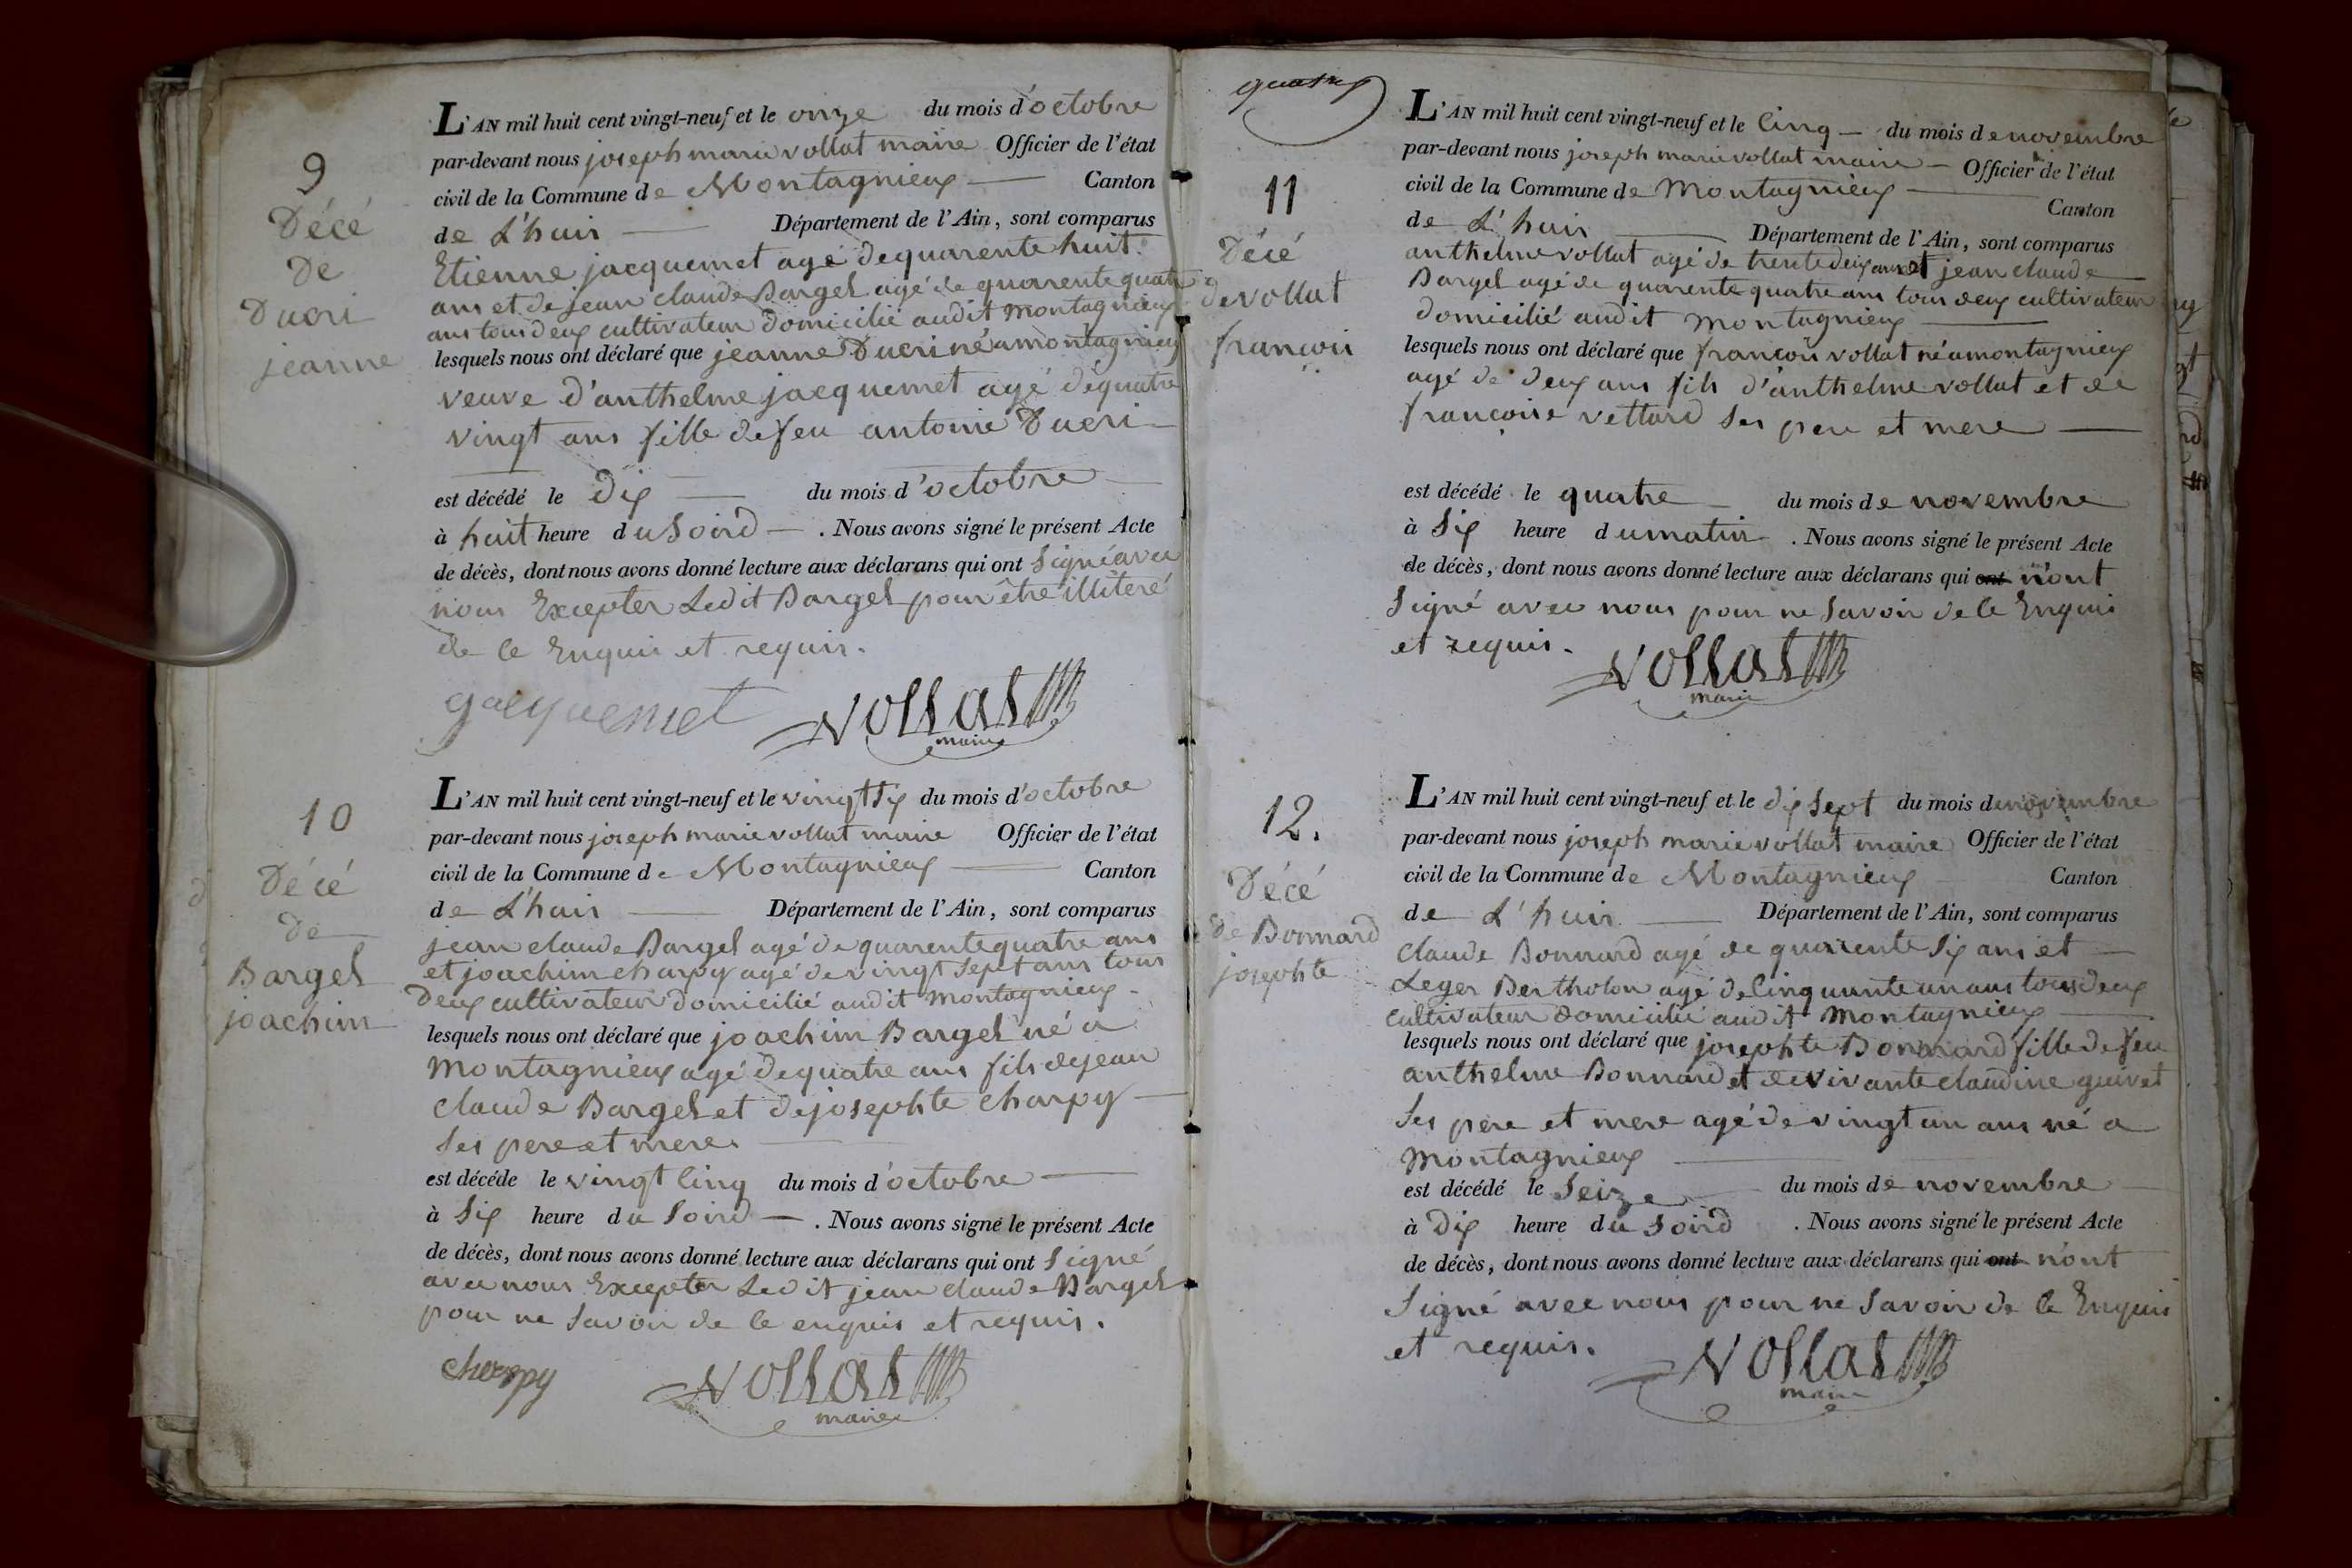 9
Décé
De
Ducri
jeanne
L'AN mil huit cent vingt-neuf et le onze du mois d'octobre
par-devant nous joseph marie vollat maire Officier de l'état
civil de la Commune de Montagnieux Canton
de L'huis Département de l'Ain, sont comparus
Etienne jacquemet agé de quarente huit
ans et de jean claude Bargel agé de quarente quatre
ans tous deux cultivateur Domicilié audit Montagnieux
lesquels nous ont déclaré que jeanne Ducri né a montagnieux
veuve d'anthelme jacquemet agé de quatre
vingt ans fille de feu antoine Ducri
est décédé le Dix du mois d'octobre
à huit heure du Soird. Nous avons signé le présent Acte
de décès, dont nous avons donné lecture aux déclarans qui ont Signé avec
nous Excepter Ledit Bargel pour être illiteré
de ce Enquis et requis.
jacquemet Vollat
maire
10
Décé
De
Bargel
joachim
L'AN mil huit cent vingt-neuf et le vingt Six du mois d'octobre
par-devant nous joseph marie vollat maire Officier de l'état
civil de la Commune de Montagnieux Canton
de L'huis Département de l'Ain, sont comparus
jean claude Bargel agé de quarente quatre ans
et joachim charpy agé de vingt Sept ans tous
Deux cultivateur Domicilié audit Montagnieux
lesquels nous ont déclaré que joachim Bargel né a
Montagnieux agé De quatre ans fils de jean
claude Bargel et de josephte charpy
Ses pere et mere.
est décéde le vingt Cinq du mois d'octobre
à Six heure du Soird. Nous avons signé le présent Acte
de décès, dont nous avons donné lecture aux déclarans qui ont Signé
avec nous Excepter Ledit jean claude Bargel
pour ne Savoir de ce enquis et requis.
cherpy Vollat
maire
quatre
11
Décé
de vollat
françois
L'AN mil huit cent vingt-neuf et le Cinq du mois de novembre
par-devant nous joseph marie vollat maire Officier de l'état
civil de la Commune de Montagnieux
Canton
de L'huis Département de l'Ain, sont comparus
anthelme vollat agé de trente deux ans et jean claude
Bargel agé de quarente quatre ans tous deux cultivateur
domicilié audit Montagnieux
lesquels nous ont déclaré que françois vollat né a montagnieux
agé de Deux ans fils d'anthelme vollat et de
françoise vettard Ses pere et mere
est décédé le quatre du mois de novembre
à Six heure du matin. Nous avons signé le présent Acte
de décès, dont nous avons donné lecture aux déclarans qui ont n'ont
Signé avec nous pour ne Savoir de ce Enquis
et requis.
Vollat
maire
12.
Décé
De Bonnard
josephte
L'AN mil huit cent vingt-neuf et le dix Sept du mois de novembre
par-devant nous joseph marie vollat maire Officier de l'état
civil de la Commune de Montagnieux Canton
de L'huis Département de l'Ain, sont comparus
Claude Bonnard agé de quarente Six ans et
Leger Bertholon agé de Cinquante un ans tous deux
cultivateur domicilié audit Montagnieux
lesquels nous ont déclaré que josephte Bonnard fille de feu
anthelme Bonnard et de vivante claudine guivet
Ses pere et mere agé de vingt un ans né a
Montagnieux
est décédé le Seize du mois de novembre
à Dix heure du Soird. Nous avons signé le présent Acte
de décès, dont nous avons donné lecture aux déclarans qui ont n'ont
Signé avec nous pour ne Savoir de ce Enquis
et requis.
Vollat
maire